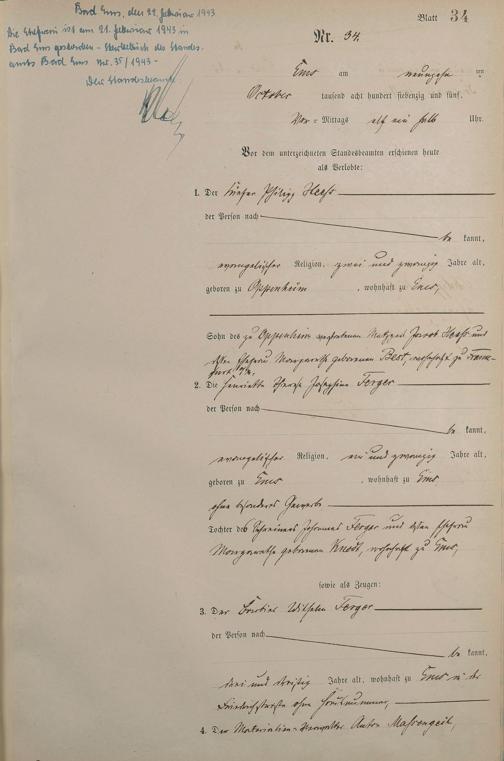 Bad Ems, den 22. Februar 1943
Die Ehefrau ist am 21. Februar 1943 in
Bad Ems gestorben - Sterbebuch des Standes-
amts Bad Ems Nr. 35/1943 -
Der Standesbeamte
Blatt 34
Nr. 34.
Ems am neunzehn ten
October tausend acht hundert siebenzig und fünf,
Vor = Mittags elf ein halb Uhr.
Vor dem unterzeichneten Standesbeamten erschienen heute
als Verlobte:
1. Der Küfer Philipp Hess
der Person nach
be kannt,
evangelischer Religion, zwei und zwanzig Jahre alt,
geboren zu Oppenheim , wohnhaft zu Ems,
Sohn des zu Oppenheim verstorbenen Jacob Hess und
dessen Ehefrau Margarethe geborenen Best, wohnhaft zu
2. Die Henriette Josephine Ferger
der Person nach
be kannt,
evangelischer Religion, ein und zwanzig Jahre alt,
geboren zu Ems , wohnhaft zu Ems
ohne besonderes Gewerbe
Tochter des Schreiners Johannes Ferger und dessen Ehefrau
Margarethe geborenen wohnhaft zu Ems,
sowie als Zeugen:
3. Der Wilhelm Ferger
der Person nach
be kannt,
drei und dreißig Jahre alt, wohnhaft zu Ems in der
Friedrichstraße ohne Hausnummer,
4. Der Materialien-Verwalter Anton Massengeil,